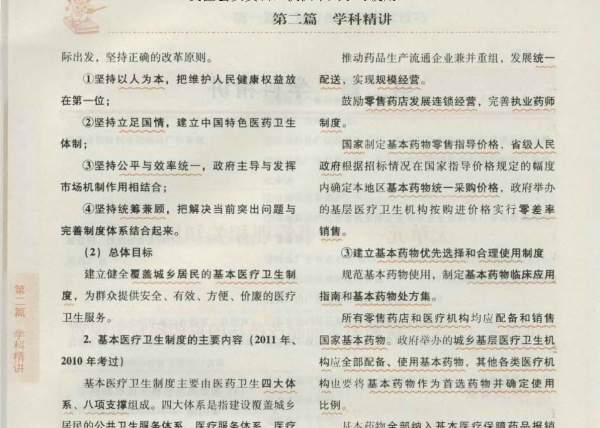 第二篇 学科精讲
际出发，坚持正确的改革原则。
①坚持以人为本，把维护人民健康权益放
在第一位；
②坚持立足国情，建立中国特色医药卫生
体制；
③坚持公平与效率统一，政府主导与发挥
市场机制作用相结合；
④坚持统筹兼顾，把解决当前突出问题与
完善制度体系结合起来。
（2）总体目标
建立健全覆盖城乡居民的基本医疗卫生制
度，为群众提供安全、有效、方便、价廉的医疗
卫生服务。
2. 基本医疗卫生制度的主要内容（2011 年、
2010 年考过）
基本医疗卫生制度主要由医药卫生四大体
系、八项支撑组成。四大体系是指建设覆盖城乡
居民的公共卫生服务体系、医疗服务体系、医疗
推动药品生产流通企业兼并重组，发展统一
配送、实现规模经营。
鼓励零售药店发展连锁经营，完善执业药师
制度。
国家制定基本药物零售指导价格，省级人民
政府根据招标情况在国家指导价格规定的幅度
内确定本地区基本药物统一采购价格，政府举办
的基层医疗卫生机构按购进价格实行零差率
销售。
③建立基本药物优先选择和合理使用制度
规范基本药物使用，制定基本药物临床应用
指南和基本药物处方集。
所有零售药店和医疗机构均应配备和销售
国家基本药物。政府举办的城乡基层医疗卫生机
构应全部配备、使用基本药物，其他各类医疗机
构也要将基本药物作为首选药物并确定使用
比例。
基本药物全部纳入基本医疗保障药品报销
第二篇 学科精讲